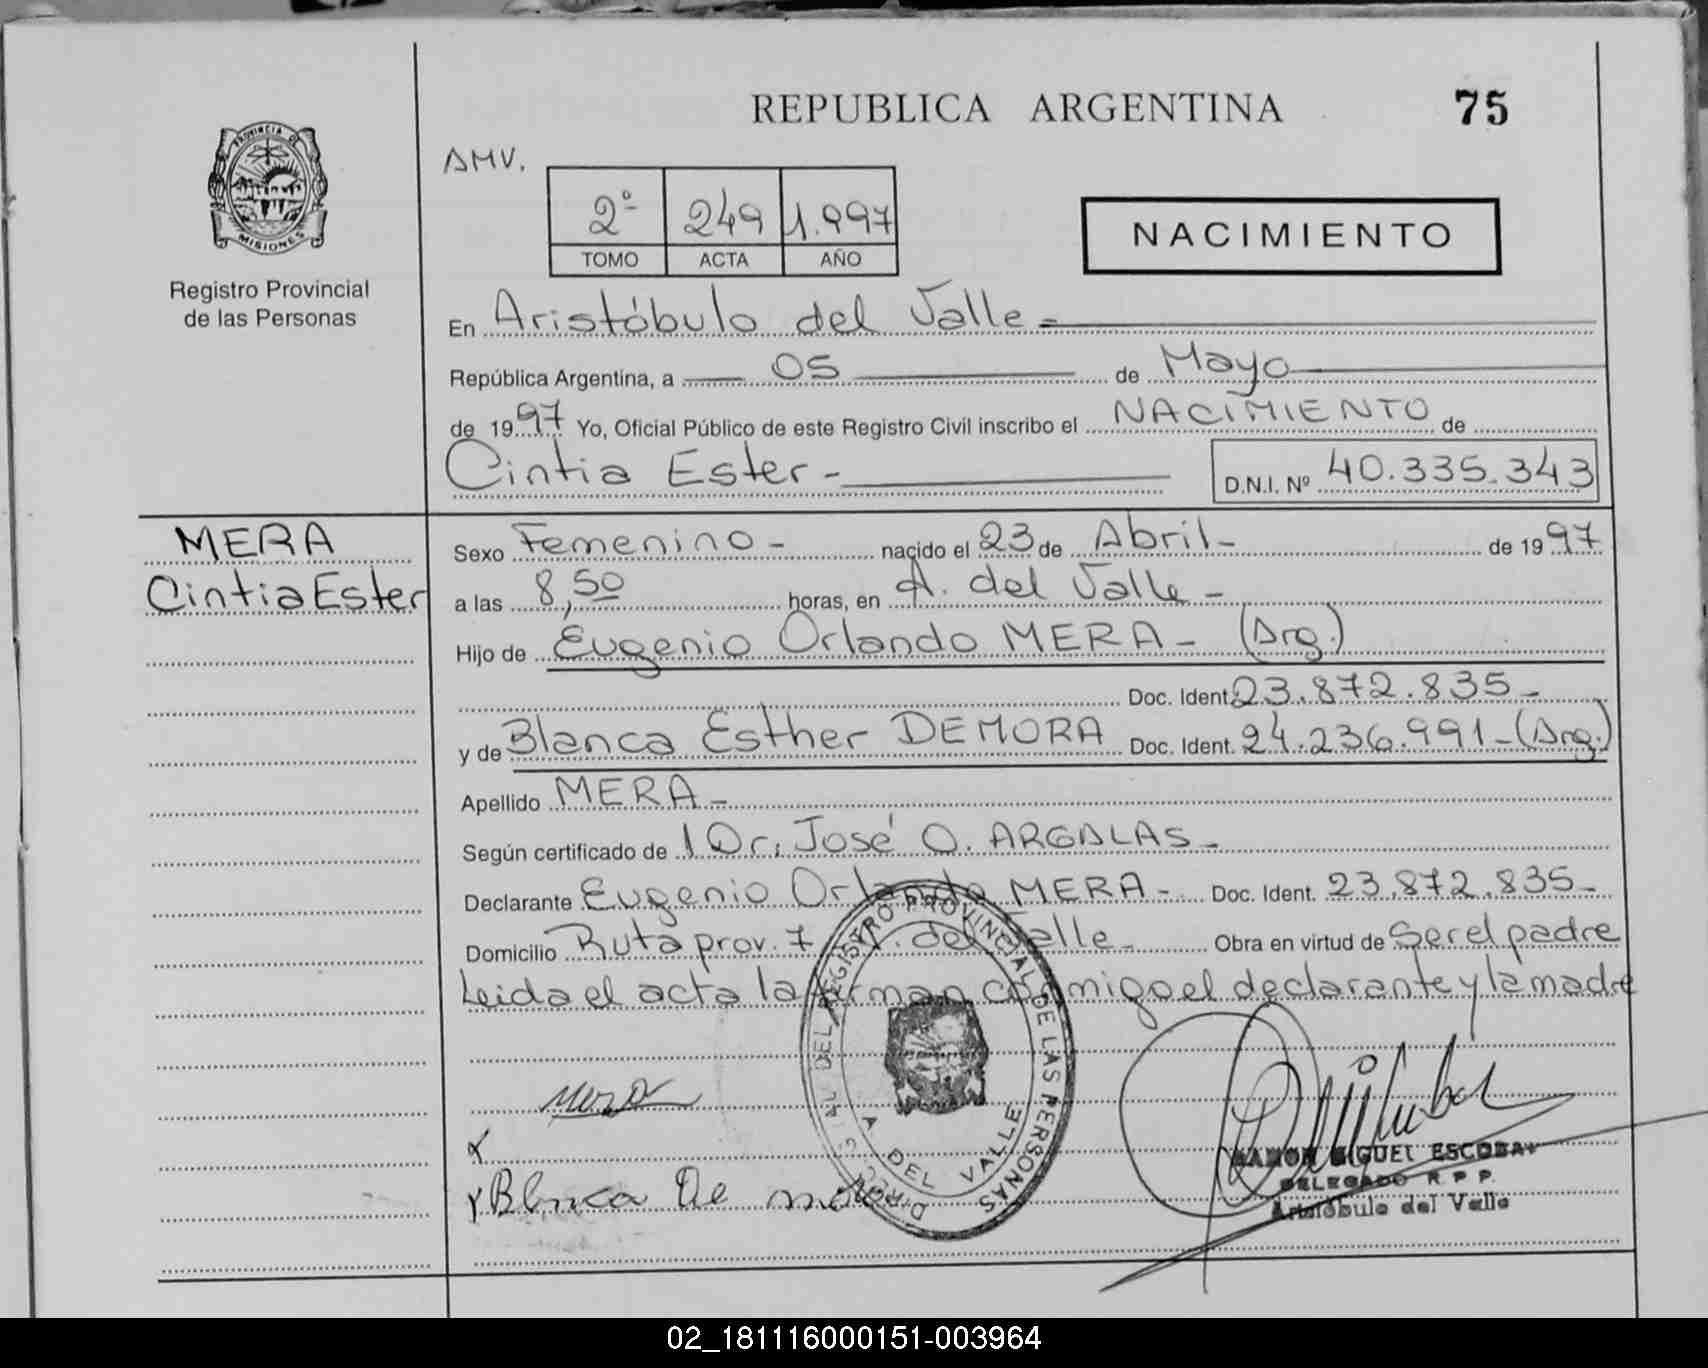 REPUBLICA ARGENTINA 75
PROVINCIA DE
MISIONES
Registro Provincial
de las Personas
AMV.
2º 249 1.997
TOMO ACTA AÑO
NACIMIENTO
En Aristóbulo del Valle -
República Argentina, a 05 de Mayo
de 1997 Yo, Oficial Público de este Registro Civil inscribo el NACIMIENTO de
Cintia Ester - D.N.I. Nº 40.335.343
MERA
Cintia Ester
Sexo Femenino - nacido el 23 de Abril - de 1997
a las 8,50 horas, en A. del Valle -
Hijo de Eugenio Orlando MERA - (Arg.)
Doc. Ident. 23.872.835 -
y de Blanca Esther DEMORA Doc. Ident. 24.236.991 - (Arg.)
Apellido MERA -
Según certificado de l Dr. José O. ARGALAS -
Declarante Eugenio Orlando MERA - Doc. Ident. 23.872.835 -
Domicilio Ruta prov. 7 A. del Valle - Obra en virtud de Ser el padre
Leida el acta la firman conmigo el declarante y la madre
Mera
x
x Blnca De mora
DIREC. GRAL. DEL REGISTRO PROVINCIAL DE LAS PERSONAS
A DEL VALLE
RAMON MIGUEL ESCOBAR
DELEGADO R. P. P.
Aristóbulo del Valle
02_181116000151-003964